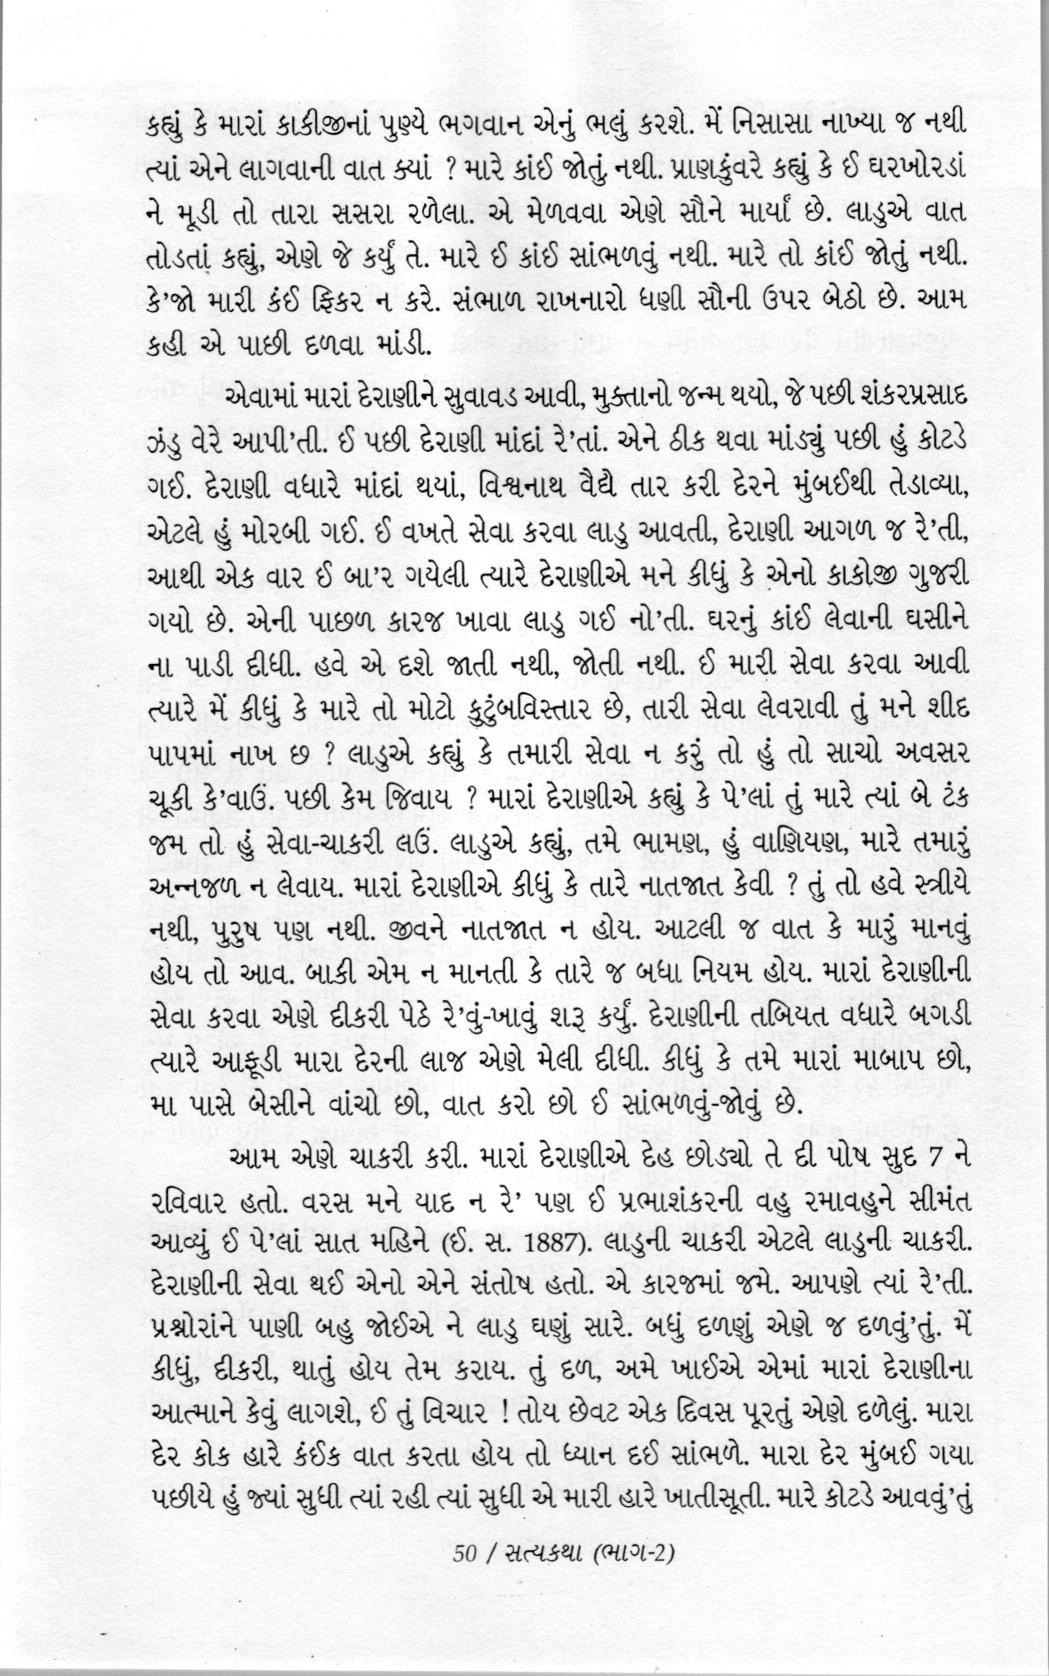 કહ્યું કે મારાં કાકીજીનાં પુણ્યે ભગવાન એનું ભલું કરશે. મેં નિસાસા નાખ્યા જ નથી
ત્યાં એને લાગવાની વાત ક્યાં ? મારે કાંઈ જોતું નથી. પ્રાણકુંવરે કહ્યું કે ઈ ઘરખોરડાં
ને મૂડી તો તારા સસરા રળેલા. એ મેળવવા એણે સૌને માર્યાં છે. લાડુએ વાત
તોડતાં કહ્યું, એણે જે કર્યું તે. મારે ઈ કાંઈ સાંભળવું નથી. મારે તો કાંઈ જોતું નથી.
કે'જો મારી કંઈ ફિકર ન કરે. સંભાળ રાખનારો ધણી સૌની ઉપર બેઠો છે. આમ
કહી એ પાછી દળવા માંડી.
એવામાં મારાં દેરાણીને સુવાવડ આવી, મુક્તાનો જન્મ થયો, જે પછી શંકરપ્રસાદ
ઝંડુ વેરે આપી'તી. ઈ પછી દેરાણી માંદાં રે'તાં. એને ઠીક થવા માંડ્યું પછી હું કોટડે
ગઈ. દેરાણી વધારે માંદાં થયાં, વિશ્વનાથ વૈદ્યે તાર કરી દેરને મુંબઈથી તેડાવ્યા,
એટલે હું મોરબી ગઈ. ઈ વખતે સેવા કરવા લાડુ આવતી, દેરાણી આગળ જ રે'તી,
આથી એક વાર ઈ બા'ર ગયેલી ત્યારે દેરાણીએ મને કીધું કે એનો કાકોજી ગુજરી
ગયો છે. એની પાછળ કારજ ખાવા લાડુ ગઈ નો'તી. ઘરનું કાંઈ લેવાની ઘસીને
ના પાડી દીધી. હવે એ દશે જાતી નથી, જોતી નથી. ઈ મારી સેવા કરવા આવી
ત્યારે મેં કીધું કે મારે તો મોટો કુટુંબવિસ્તાર છે, તારી સેવા લેવરાવી તું મને શીદ
પાપમાં નાખ છ ? લાડુએ કહ્યું કે તમારી સેવા ન કરું તો હું તો સાચો અવસર
ચૂકી કે'વાઉં. પછી કેમ જિવાય ? મારાં દેરાણીએ કહ્યું કે પે'લાં તું મારે ત્યાં બે ટંક
જમ તો હું સેવા-ચાકરી લઉં. લાડુએ કહ્યું, તમે ભામણ, હું વાણિયણ, મારે તમારું
અન્નજળ ન લેવાય. મારાં દેરાણીએ કીધું કે તારે નાતજાત કેવી ? તું તો હવે સ્ત્રીયે
નથી, પુરુષ પણ નથી. જીવને નાતજાત ન હોય. આટલી જ વાત કે મારું માનવું
હોય તો આવ. બાકી એમ ન માનતી કે તારે જ બધા નિયમ હોય. મારાં દેરાણીની
સેવા કરવા એણે દીકરી પેઠે રે'વું-ખાવું શરૂ કર્યું. દેરાણીની તબિયત વધારે બગડી
ત્યારે આફૂડી મારા દેરની લાજ એણે મેલી દીધી. કીધું કે તમે મારાં માબાપ છો,
મા પાસે બેસીને વાંચો છો, વાત કરો છો ઈ સાંભળવું-જોવું છે.
આમ એણે ચાકરી કરી. મારાં દેરાણીએ દેહ છોડ્યો તે દી પોષ સુદ 7 ને
રવિવાર હતો. વરસ મને યાદ ન રે' પણ ઈ પ્રભાશંકરની વહુ રમાવહુને સીમંત
આવ્યું ઈ પે'લાં સાત મહિને (ઈ. સ. 1887). લાડુની ચાકરી એટલે લાડુની ચાકરી.
દેરાણીની સેવા થઈ એનો એને સંતોષ હતો. એ કારજમાં જમે. આપણે ત્યાં રે'તી.
પ્રશ્નોરાંને પાણી બહુ જોઈએ ને લાડુ ઘણું સારે. બધું દળણું એણે જ દળવું'તું. મેં
કીધું, દીકરી, થાતું હોય તેમ કરાય. તું દળ, અમે ખાઈએ એમાં મારાં દેરાણીના
આત્માને કેવું લાગશે, ઈ તું વિચાર ! તોય છેવટ એક દિવસ પૂરતું એણે દળેલું. મારા
દેર કોક હારે કંઈક વાત કરતા હોય તો ધ્યાન દઈ સાંભળે. મારા દેર મુંબઈ ગયા
પછીયે હું જ્યાં સુધી ત્યાં રહી ત્યાં સુધી એ મારી હારે ખાતીસૂતી. મારે કોટડે આવવું'તું
50 / સત્યકથા (ભાગ-2)